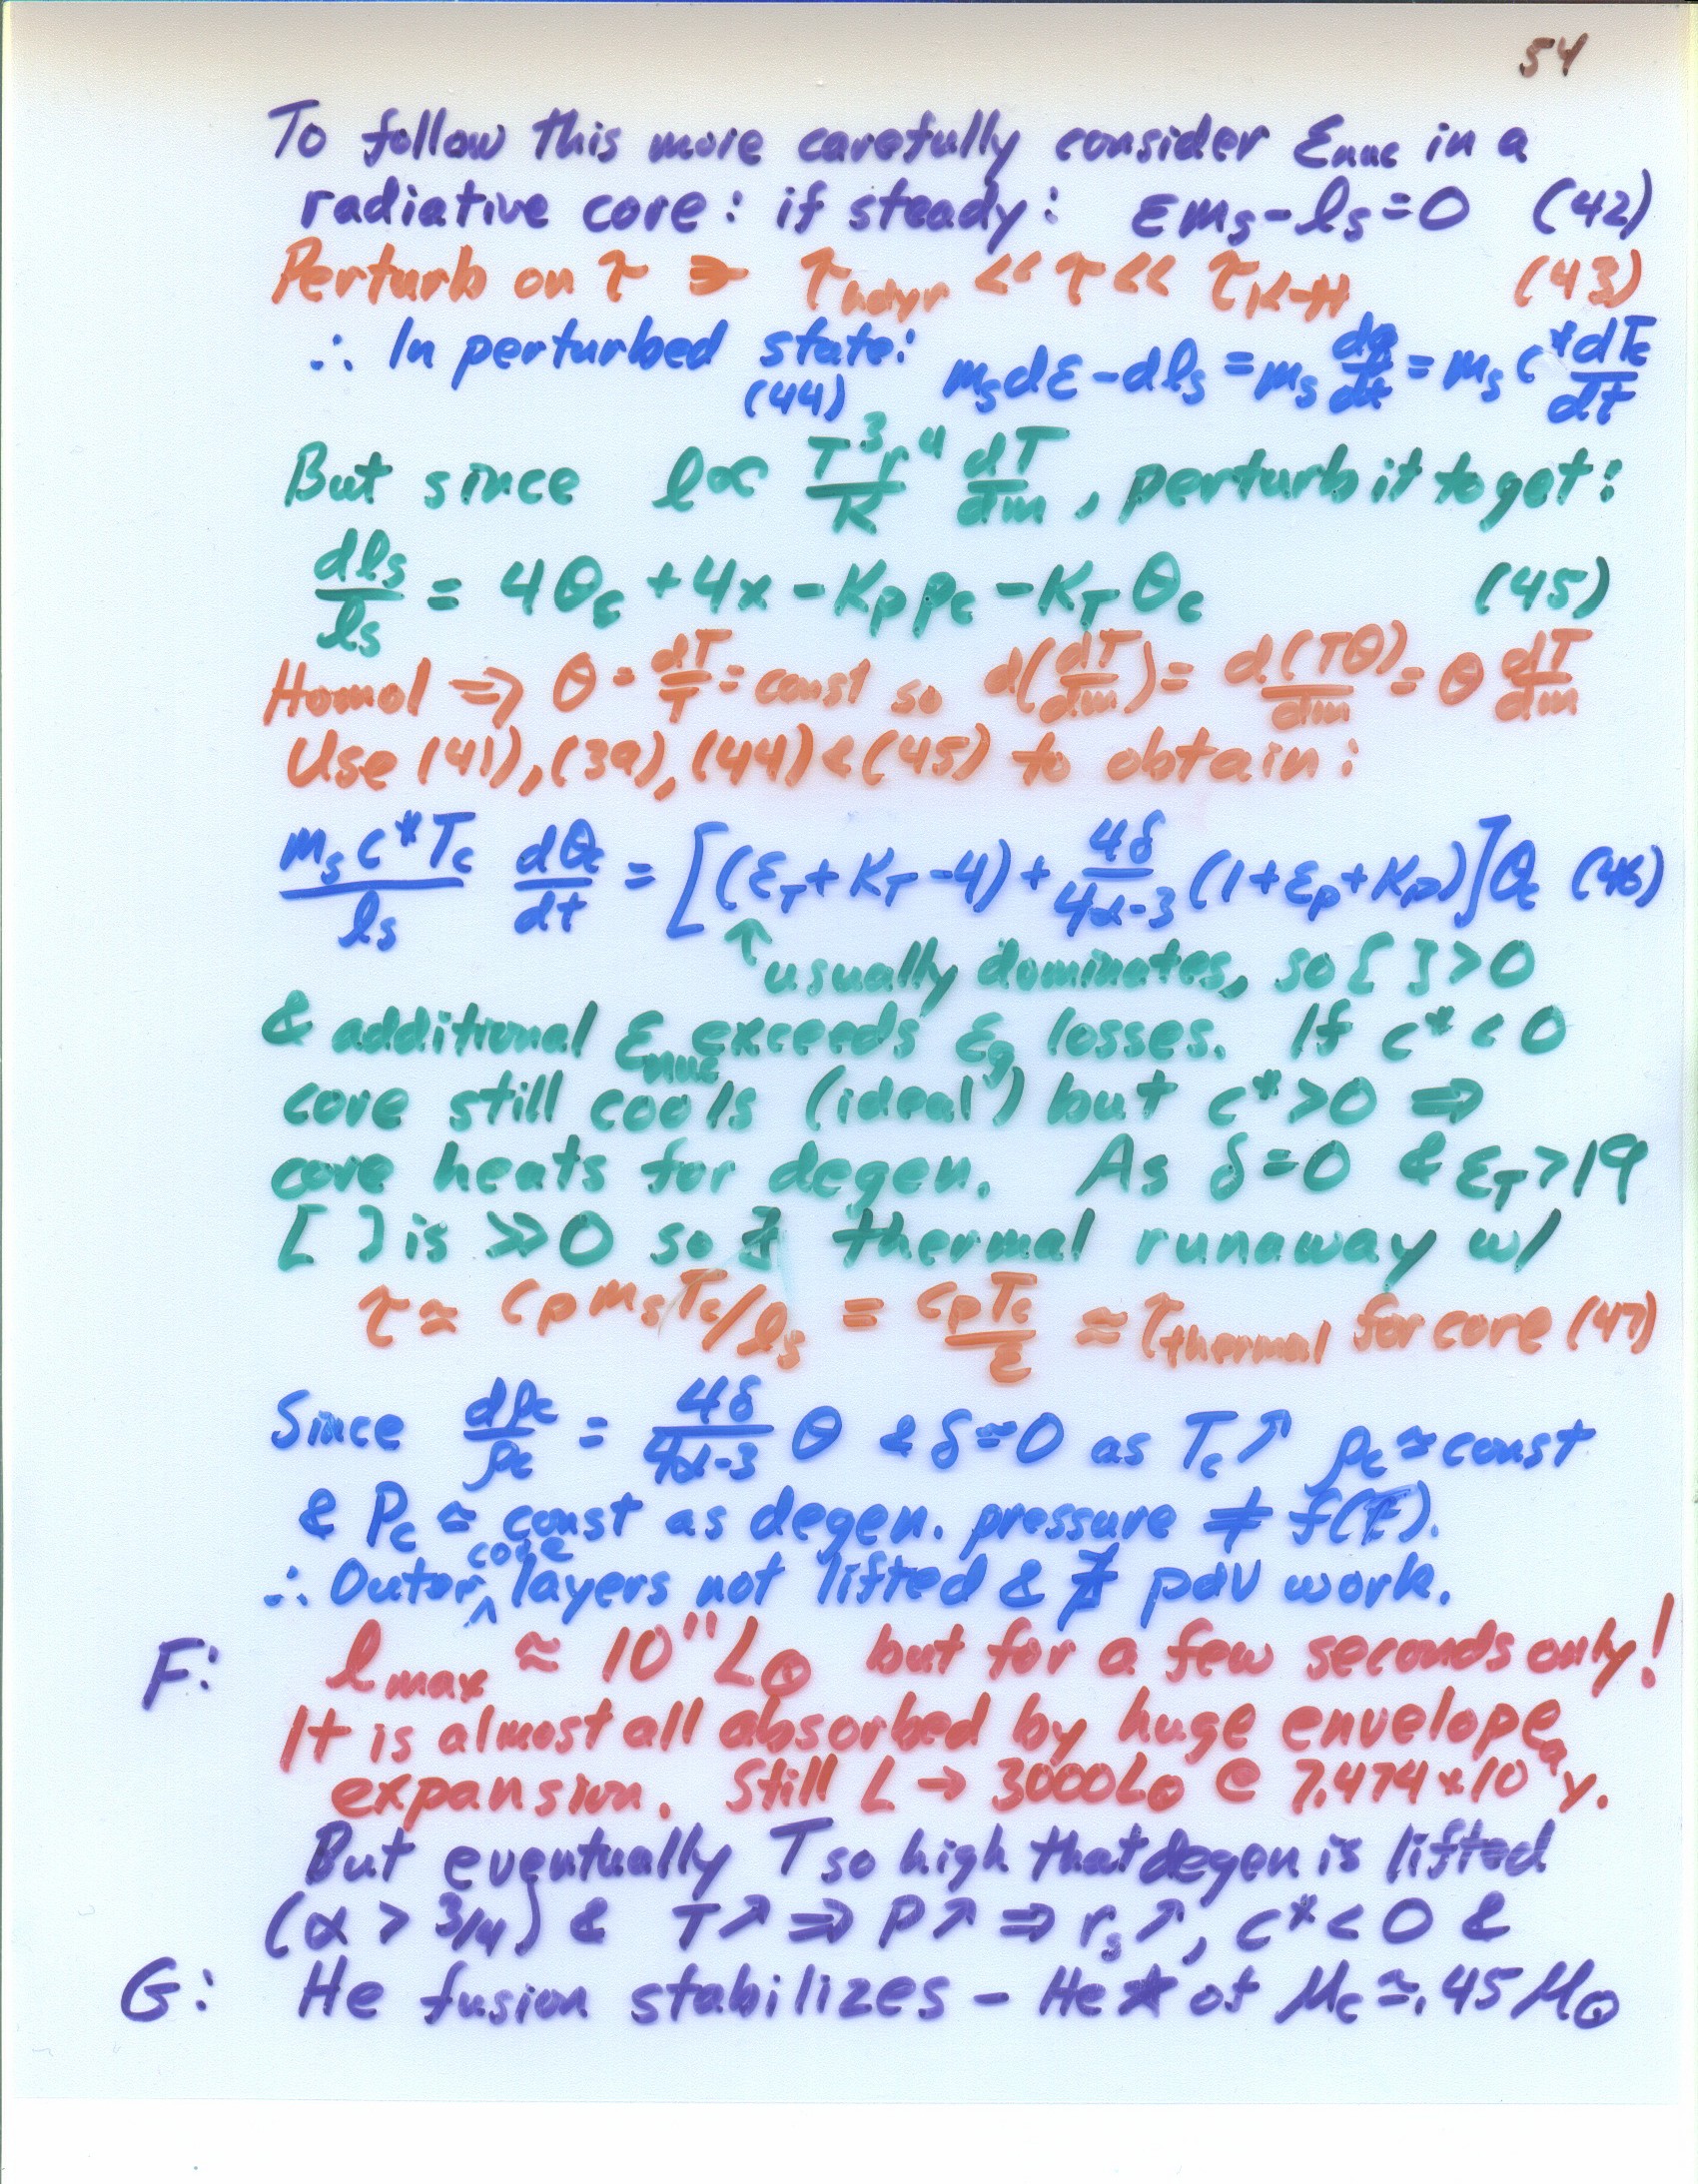 54
To follow this more carefully consider Ɛnuc in a
radiative core: if steady: Ɛ m_s - l_s = 0 (42)
Perturb on τ ∋ τ_hdyr << τ << τ_K-H (43)
∴ In perturbed state: m_s dƐ - dl_s = m_s dq/dt = m_s c* dT_c/dt
(44)
But since l ∝ T³r⁴/K dT/dm, perturb it to get:
dl_s/l_s = 4θ_c + 4x - K_P p_c - K_T θ_c (45)
Homol ⇒ θ = dT/T = const so d(dT/dm) = d(Tθ)/dm = θ dT/dm
Use (41), (39), (44) & (45) to obtain:
m_s c* T_c/l_s dθ_c/dt = [(Ɛ_T + K_T - 4) + 4δ/4α-3 (1 + Ɛ_P + K_P)]θ_c (46)
↑ usually dominates, so [ ] > 0
& additional Ɛnuc exceeds Ɛg losses. If c* < 0
core still cools (ideal) but c* > 0 ⇒
core heats for degen. As δ=0 & Ɛ_T > 19
[ ] is >> 0 so ∃ thermal runaway w/
τ ≃ c_P m_s T_c/l_s = c_P T_c/Ɛ ≈ τ_thermal for core (47)
Since dρ_c/ρ_c = 4δ/4α-3 θ & δ≃0 as T_c ↗ ρ_c ≃ const
& P_c ≃ const as degen. pressure ≠ f(T).
core
∴ Outer ^ layers not lifted & ∄ pdV work.
F: l_max ≈ 10¹¹ L⊙ but for a few seconds only!
It is almost all absorbed by huge envelope
expansion. Still L → 3000L⊙ @ 7.474×10⁹y.
But eventually T so high that degen is lifted
(α > 3/4) & T↗ ⇒ P↗ ⇒ r_s↗, c* < 0 &
G: He fusion stabilizes - He ★ of M_c ≃ .45 M⊙